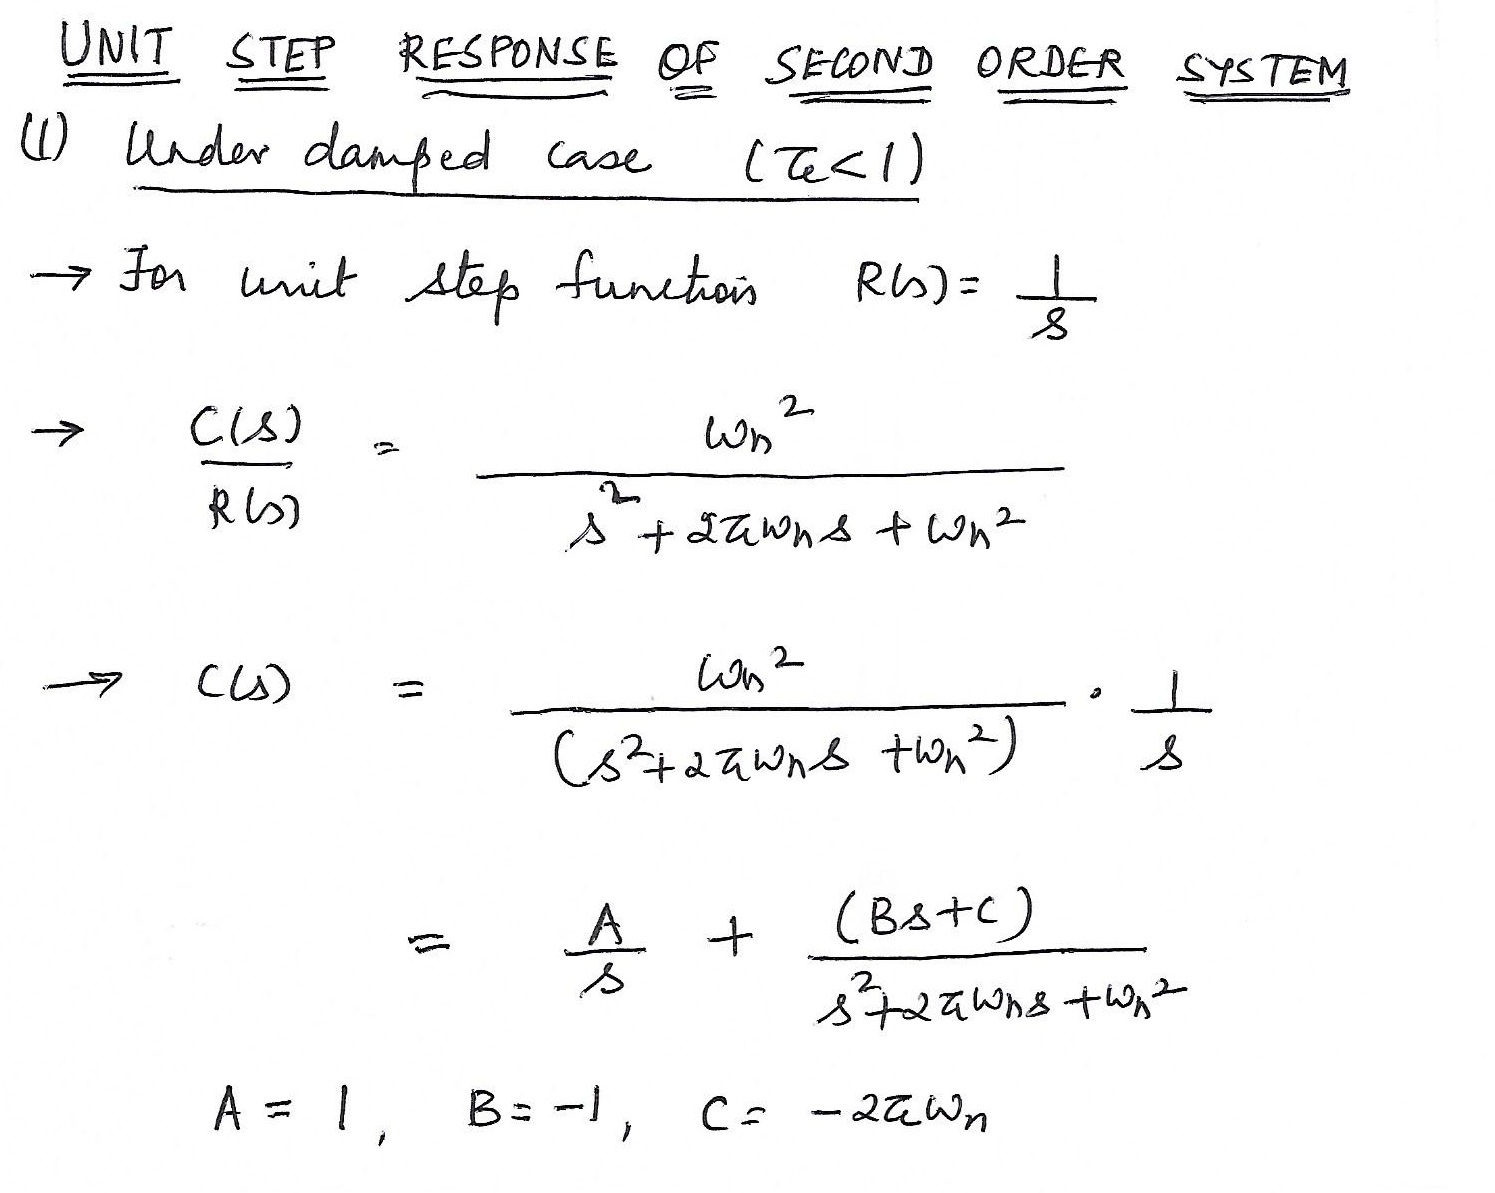 UNIT STEP RESPONSE OF SECOND ORDER SYSTEM
(1) Under damped case (ζ<1)
→ For unit step function R(s) = 1/s
→ C(s)/R(s) = ωn²/(s² + 2ζωns + ωn²)
→ C(s) = ωn²/(s²+2ζωns +ωn²) · 1/s
= A/s + (Bs+C)/(s²+2ζωns +ωn²)
A = 1, B = -1, C = -2ζωn